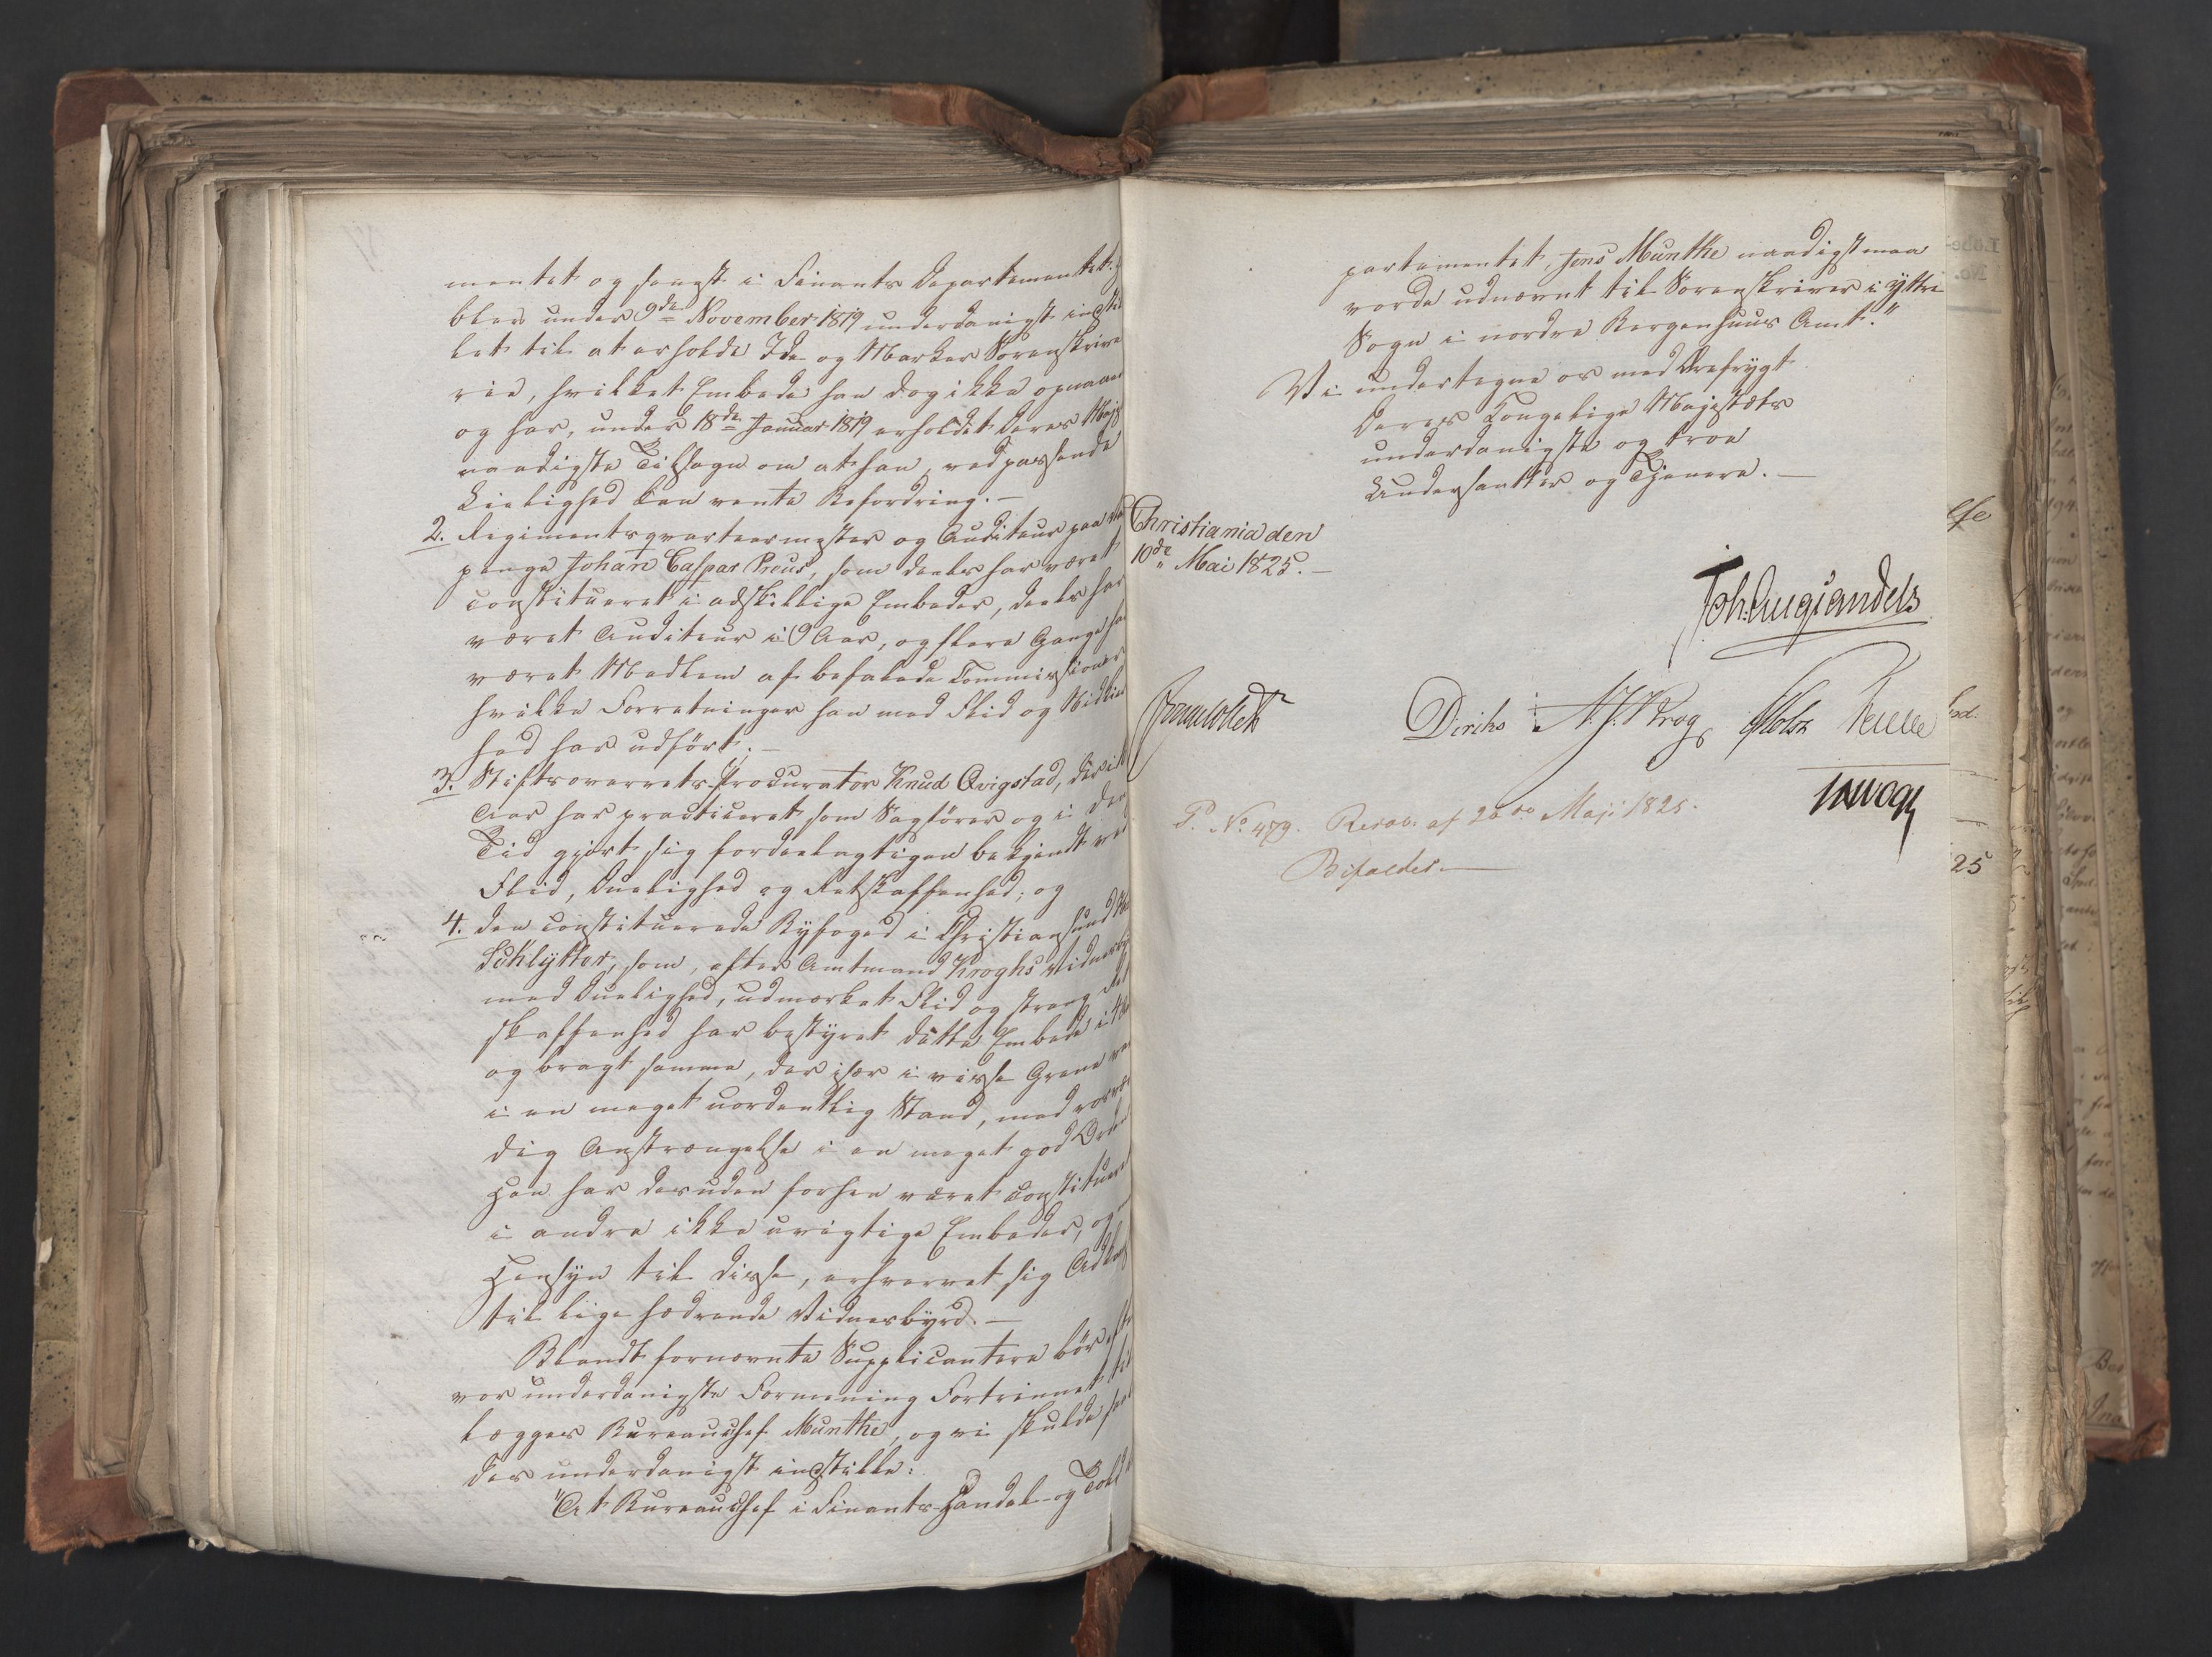 mentet og senest i Finants Departementet,
blev under 9de November 1819 underdanigst indstil
let til at erholde Ide og Marker Sorenskrive
rie, hvilket Embede han dog ikke opnaaede
og har, under 18de Januar 1819 erholdt Deres Majs
naadigste Tilsagn om at han, ved passende
Leilighed kan vente Befordring. —
2. Regimentsqvarteermester og Auditeur paa
penge Johan Caspar Preus, som deels har været
constitueret i adskillige Embeder, deels har
været Auditeur i 9 Aar, og flere Gange har
været Medlem af befalede Commissioner
hvilke Forretninger han med Flid og Nidkier
hed har udført. —
3. Stiftsoverrets-Procurator Knud Qvigstad, der i
Aar har practiceret som Sagfører og i den
Tid gjort sig fordeelagtigen bekjendt ved
Flid, Duelighed og Retskaffenhed; og
4. den constituerede Byfoged i Christiansund
Schlytter, som, efter Amtmand Kroghs Vidnesby
med Duelighed, udmærket Flid og streng Ret
skaffenhed har bestyret dette Embede i
og bragt samme, der især i visse Grene var
i en meget uordentlig Stand, med
dig Anstrængelse i en meget god Orden
Han har desuden forhen været constitueret
i andre ikke uvigtige Embeder, og
Hensyn til disse, erhvervet sig Adkomst
til lige hædrende Vidnesbyrd. —
Blandt fornævnte Supplicantere bör efter
vor underdanigste Formening Fortrinnet til
lægges Bureauchef Munthe, og vi skulde saa
der underdanigst indstille:
"At Bureauchef i Finants-Handel- og Told
partementet, Jens Munthe naadigst maa
vorde udnævnt til Sorenskriver i Yttre
Sogn i nordre Bergenhuus Amt."
Vi undertegne os med Ærefrygt
Deres Kongelige Majestæts
underdanigste og troe
Undersaatter og Tjenere. —
Christiania den
10de Mai 1825. —
Joh: Aug: Sandels
Diriks N. J. Krog Holst
P. No 479. Resol. af 20de Maji 1825.
Bifaldes. —
25